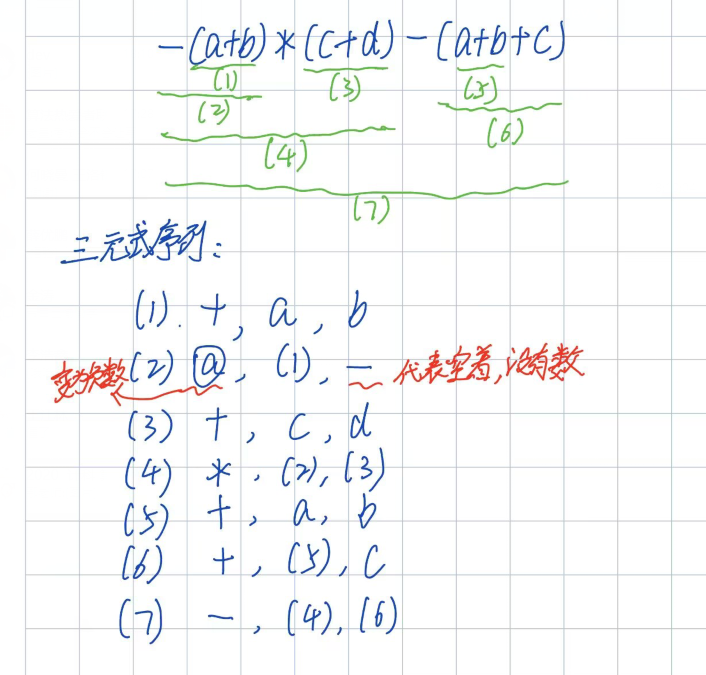 -(a+b)*(c+d)-(a+b+c)
(1) (3) (5)
(2) (6)
(4)
(7)
三元式序列:
(1). +, a, b
变为负数 (2) @, (1), — 代表空着,没有数
(3) +, c, d
(4) *, (2), (3)
(5) +, a, b
(6) +, (5), c
(7) -, (4), (6)